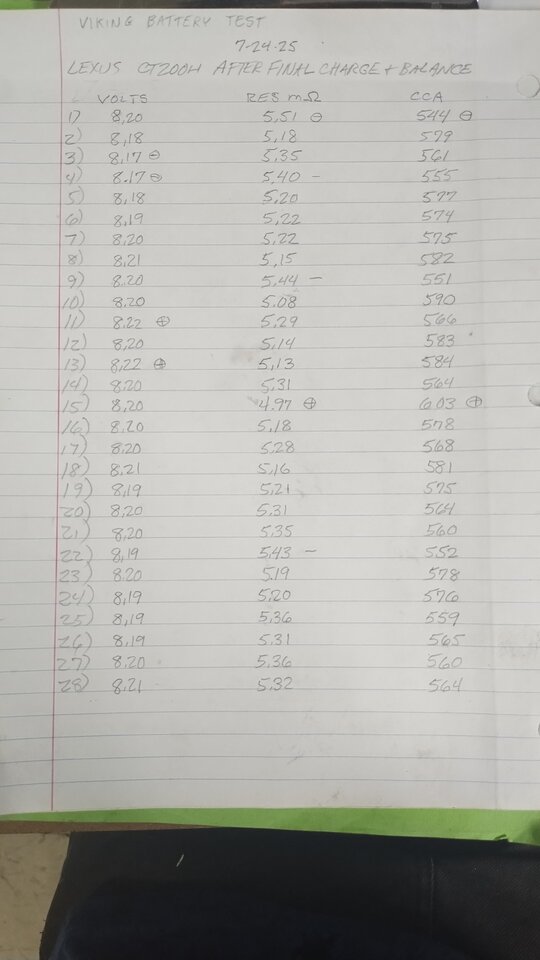 VIKING BATTERY TEST
7-24-25
LEXUS CT200H AFTER FINAL CHARGE + BALANCE
VOLTS RES mΩ CCA
1) 8,20 5,51 ⊖ 544 ⊖
2) 8,18 5,18 579
3) 8,17 ⊖ 5,35 561
4) 8.17 ⊖ 5,40 – 555
5) 8,18 5,20 577
6) 8,19 5,22 574
7) 8,20 5,22 575
8) 8,21 5,15 582
9) 8.20 5,44 – 551
10) 8.20 5.08 590
11) 8.22 ⊕ 5,29 566
12) 8,20 5,14 583
13) 8,22 ⊕ 5,13 584
14) 8.20 5,31 564
15) 8,20 4.97 ⊕ 603 ⊕
16) 8,20 5,18 578
17) 8.20 5,28 568
18) 8.21 5,16 581
19) 8,19 5,21 575
20) 8,20 5,31 564
21) 8,20 5,35 560
22) 8,19 5,43 – 552
23) 8.20 5.19 578
24) 8,19 5,20 576
25) 8,19 5,36 559
26) 8,19 5,31 565
27) 8.20 5,36 560
28) 8,21 5,32 564